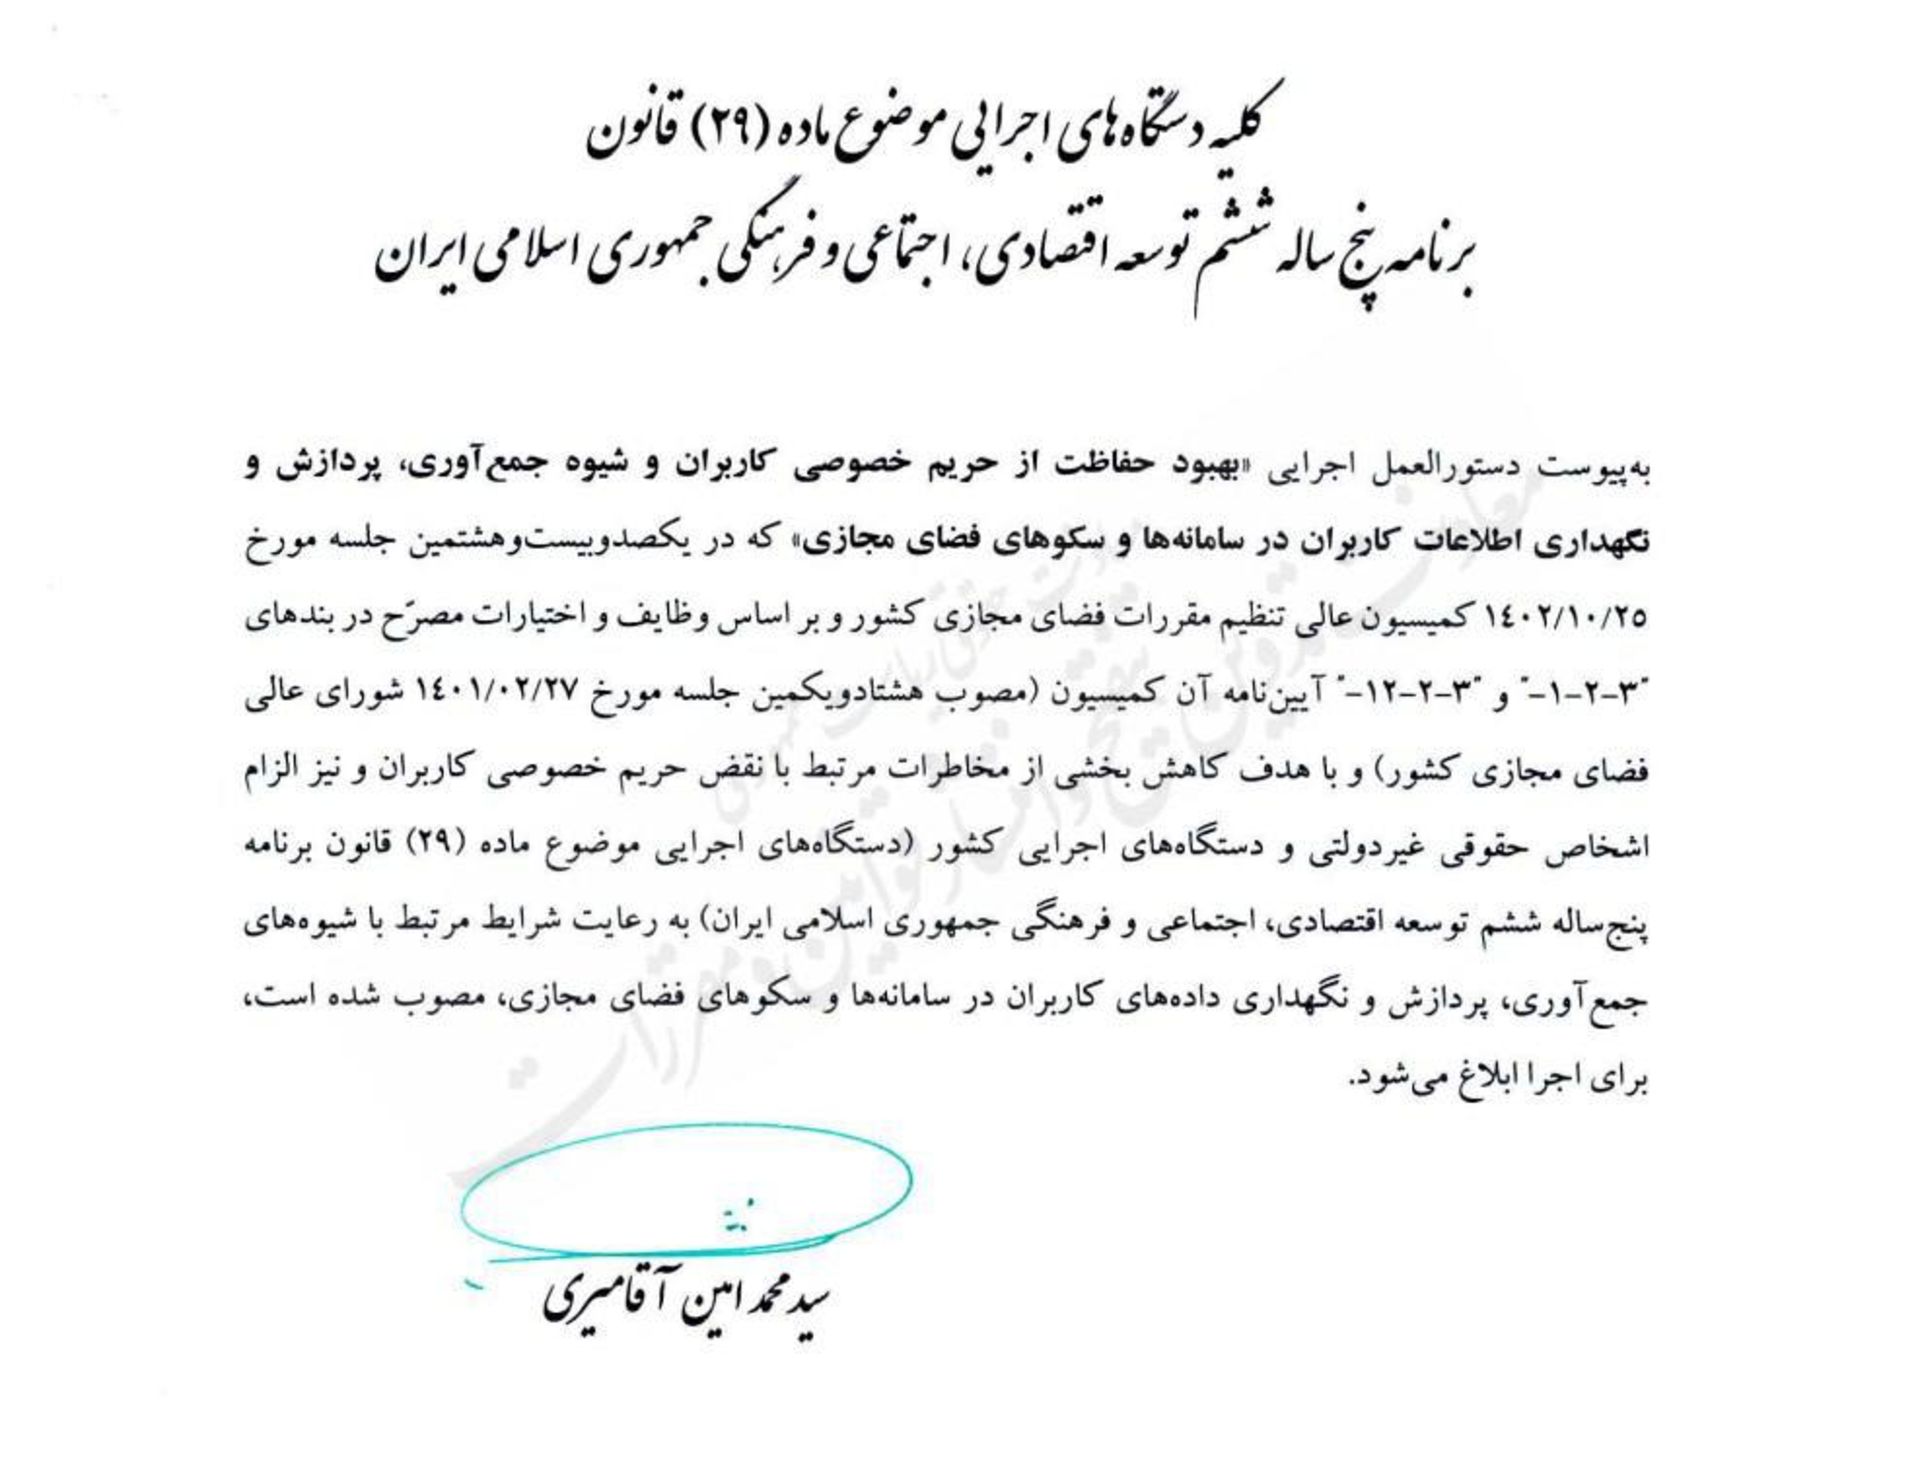 کلیه دستگاه‌های اجرایی موضوع ماده (۲۹) قانون
برنامه پنج ساله ششم توسعه اقتصادی، اجتماعی و فرهنگی جمهوری اسلامی ایران
به‌پیوست دستورالعمل اجرایی «بهبود حفاظت از حریم خصوصی کاربران و شیوه جمع‌آوری، پردازش و
نگهداری اطلاعات کاربران در سامانه‌ها و سکوهای فضای مجازی» که در یکصدوبیست‌وهشتمین جلسه مورخ
۱۴۰۲/۱۰/۲۵ کمیسیون عالی تنظیم مقررات فضای مجازی کشور و بر اساس وظایف و اختیارات مصرّح در بندهای
"۳-۲-۱-" و "۳-۲-۱۲-" آیین‌نامه آن کمیسیون (مصوب هشتادویکمین جلسه مورخ ۱۴۰۱/۰۲/۲۷ شورای عالی
فضای مجازی کشور) و با هدف کاهش بخشی از مخاطرات مرتبط با نقض حریم خصوصی کاربران و نیز الزام
اشخاص حقوقی غیردولتی و دستگاه‌های اجرایی کشور (دستگاه‌های اجرایی موضوع ماده (۲۹) قانون برنامه
پنج‌ساله ششم توسعه اقتصادی، اجتماعی و فرهنگی جمهوری اسلامی ایران) به رعایت شرایط مرتبط با شیوه‌های
جمع‌آوری، پردازش و نگهداری داده‌های کاربران در سامانه‌ها و سکوهای فضای مجازی، مصوب شده است،
برای اجرا ابلاغ می‌شود.
سیدمحمدامین آقامیری
معاونت تدوین، تنقیح و انتشار قوانین و مقررات